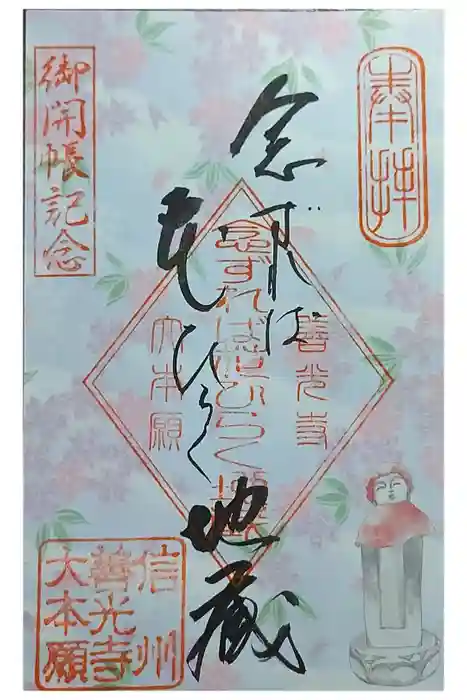 奉拝
念ずれば
花ひらく
地蔵
善光寺
念ずれば花ひらく地蔵
大本願
御開帳記念
信州
善光寺
大本願